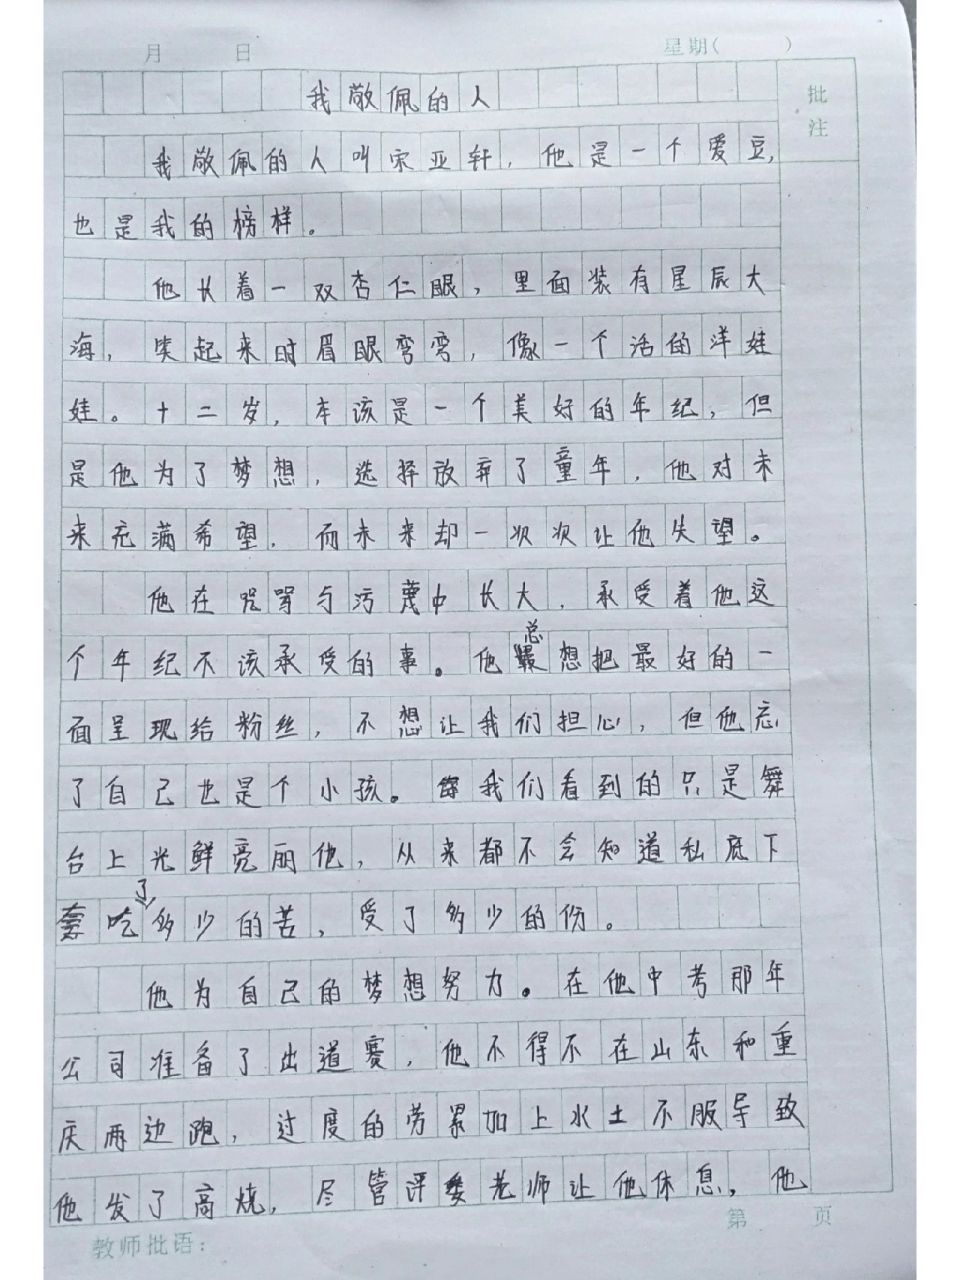 月 日 星期( )
批注
我敬佩的人
我敬佩的人叫宋亚轩，他是一个爱豆，
也是我的榜样。
他长着一双杏仁眼，里面装有星辰大
海，笑起来时眉眼弯弯，像一个活的洋娃
娃。十二岁，本该是一个美好的年纪，但
是他为了梦想，选择放弃了童年，他对未
来充满希望，而未来却一次次让他失望。
他在咒骂与污蔑中长大，承受着他这
个年纪不该承受的事。他总想把最好的一
面呈现给粉丝，不想让我们担心，但他忘
了自己也是个小孩。我们看到的只是舞
台上光鲜亮丽他，从来都不会知道私底下
吃了多少的苦，受了多少的伤。
他为自己的梦想努力。在他中考那年
公司准备了出道赛，他不得不在山东和重
庆两边跑，过度的劳累加上水土不服导致
他发了高烧，尽管评委老师让他休息，他
第 页
教师批语：